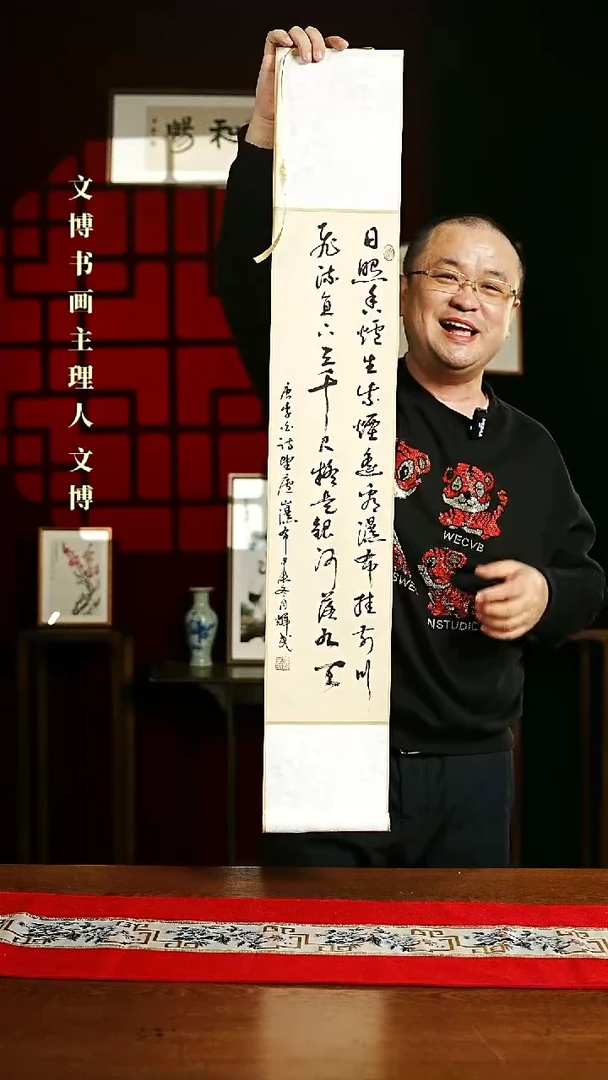 文博书画主理人文博
和暢
日照香爐生紫煙遙看瀑布挂前川
飛流直下三千尺疑是銀河落九天
唐李白詩望廬山瀑布
冬月
WECVB
NSTUDIO